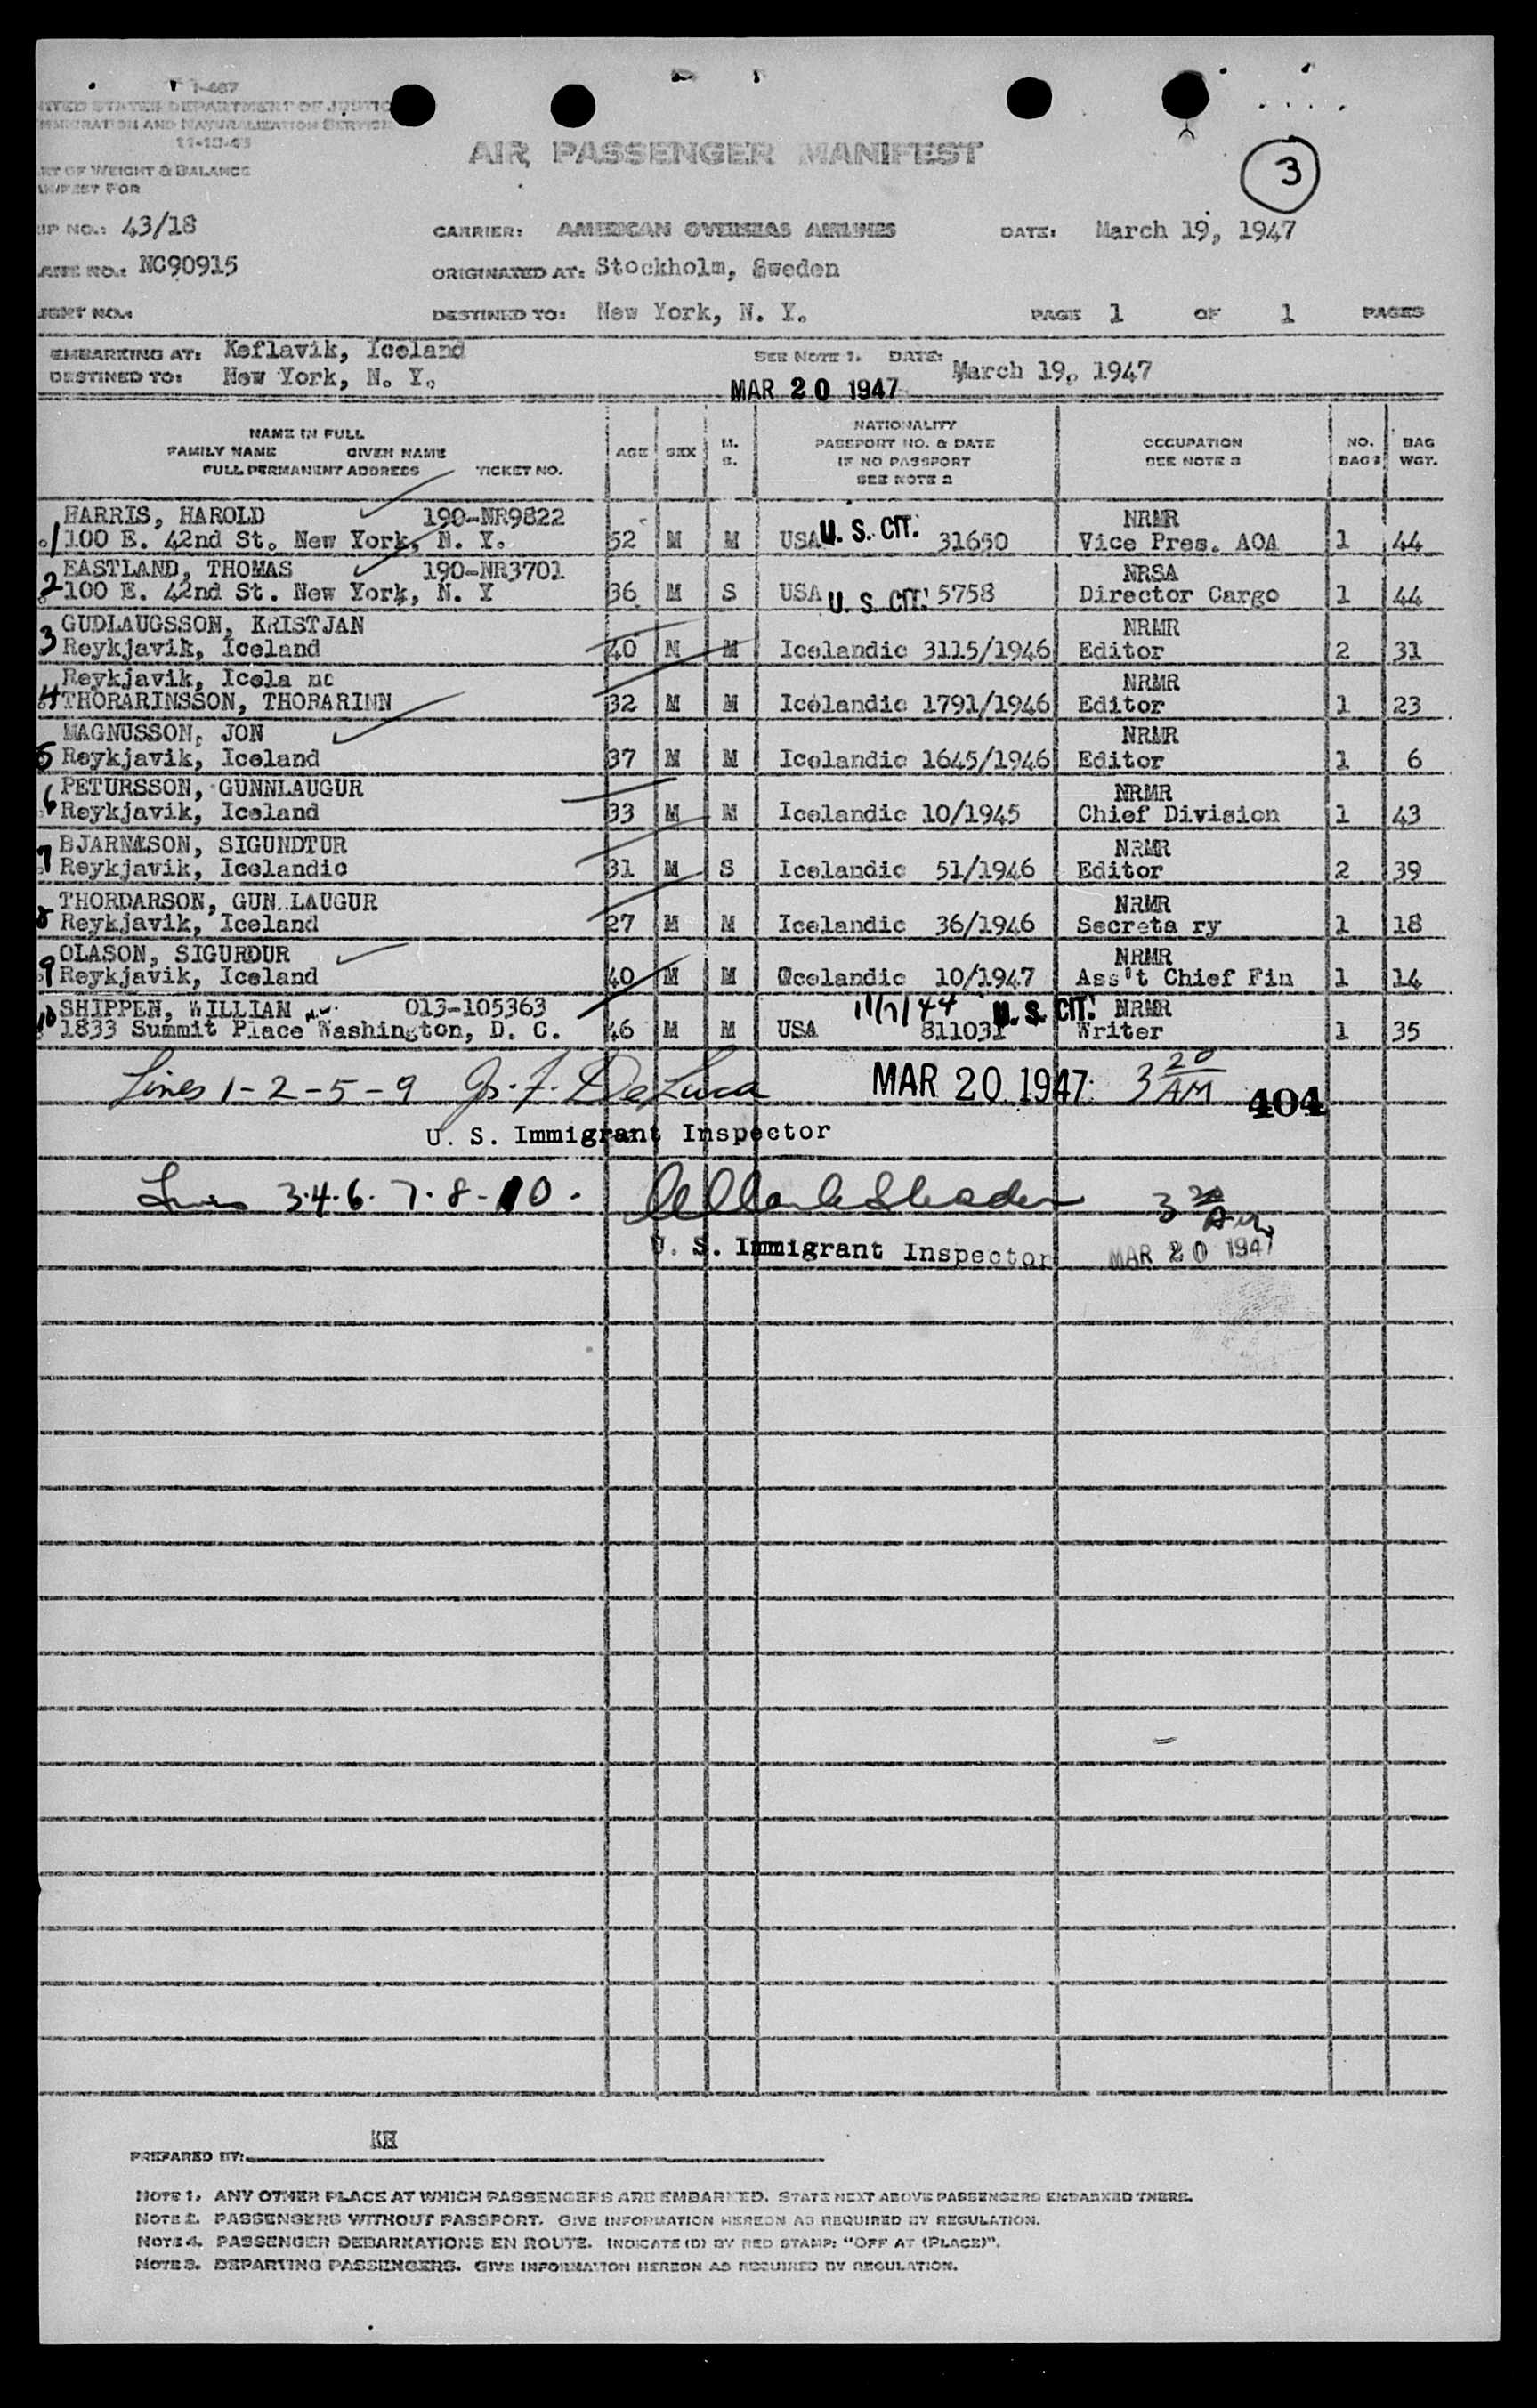 I-467
NITED STATES DEPARTMENT OF JUSTIC
MMIGRATION AND NATURALIZATION SERVICE
11-15-45
AIR PASSENGER MANIFEST
3
RT OF WEIGHT & BALANCE
ANIFEST FOR
IP NO.: 43/18 CARRIER: AMERICAN OVERSEAS AIRLINES DATE: March 19, 1947
ANE NO.: NC90915 ORIGINATED AT: Stockholm, Sweden
IGHT NO.: DESTINED TO: New York, N. Y. PAGE 1 OF 1 PAGES
EMBARKING AT: Keflavik, Iceland SEE NOTE 1. DATE: March 19, 1947
DESTINED TO: New York, N. Y.
MAR 20 1947
NAME IN FULL
FAMILY NAME GIVEN NAME
FULL PERMANENT ADDRESS TICKET NO.
AGE SEX M. S.
NATIONALITY
PASSPORT NO. & DATE
IF NO PASSPORT
SEE NOTE 2
OCCUPATION
SEE NOTE 3
NO. BAGS
BAG WGT.
HARRIS, HAROLD 190-NR9822 NRMR
1 100 E. 42nd St. New York, N. Y. 52 M M USA U. S. CIT. 31650 Vice Pres. AOA 1 44
EASTLAND, THOMAS 190-NR3701 NRSA
2 100 E. 42nd St. New York, N. Y 36 M S USA U. S. CIT. 5758 Director Cargo 1 44
GUDLAUGSSON, KRISTJAN NRMR
3 Reykjavik, Iceland 40 M M Icelandic 3115/1946 Editor 2 31
Reykjavik, Icela nc NRMR
4 THORARINSSON, THORARINN 32 M M Icelandic 1791/1946 Editor 1 23
MAGNUSSON, JON NRMR
5 Reykjavik, Iceland 37 M M Icelandic 1645/1946 Editor 1 6
PETURSSON, GUNNLAUGUR NRMR
6 Reykjavik, Iceland 33 M M Icelandic 10/1945 Chief Division 1 43
BJARNASON, SIGUNDTUR NRMR
7 Reykjavik, Icelandic 31 M S Icelandic 51/1946 Editor 2 39
THORDARSON, GUN LAUGUR NRMR
8 Reykjavik, Iceland 27 M M Icelandic 36/1946 Secreta ry 1 18
OLASON, SIGURDUR NRMR
9 Reykjavik, Iceland 40 M M Ocelandic 10/1947 Ass't Chief Fin 1 14
SHIPPEN, WILLIAN 013-105363 11/7/44 U. S. CIT. NRMR
10 1833 Summit Place Washington, D. C. 46 M M USA 811031 Writer 1 35
Lines 1-2-5-9 J. F. DeLuca MAR 20 1947 3 20 AM 404
U. S. Immigrant Inspector
Lines 3.4.6.7.8-10. 3
U. S. Immigrant Inspector MAR 20 1947
PREPARED BY: KH
NOTE 1. ANY OTHER PLACE AT WHICH PASSENGERS ARE EMBARKED. STATE NEXT ABOVE PASSENGERS EMBARKED THERE.
NOTE 2. PASSENGERS WITHOUT PASSPORT. GIVE INFORMATION HEREON AS REQUIRED BY REGULATION.
NOTE 4. PASSENGER DEBARKATIONS EN ROUTE. INDICATE (D) BY RED STAMP: "OFF AT (PLACE)".
NOTE 3. DEPARTING PASSENGERS. GIVE INFORMATION HEREON AS REQUIRED BY REGULATION.